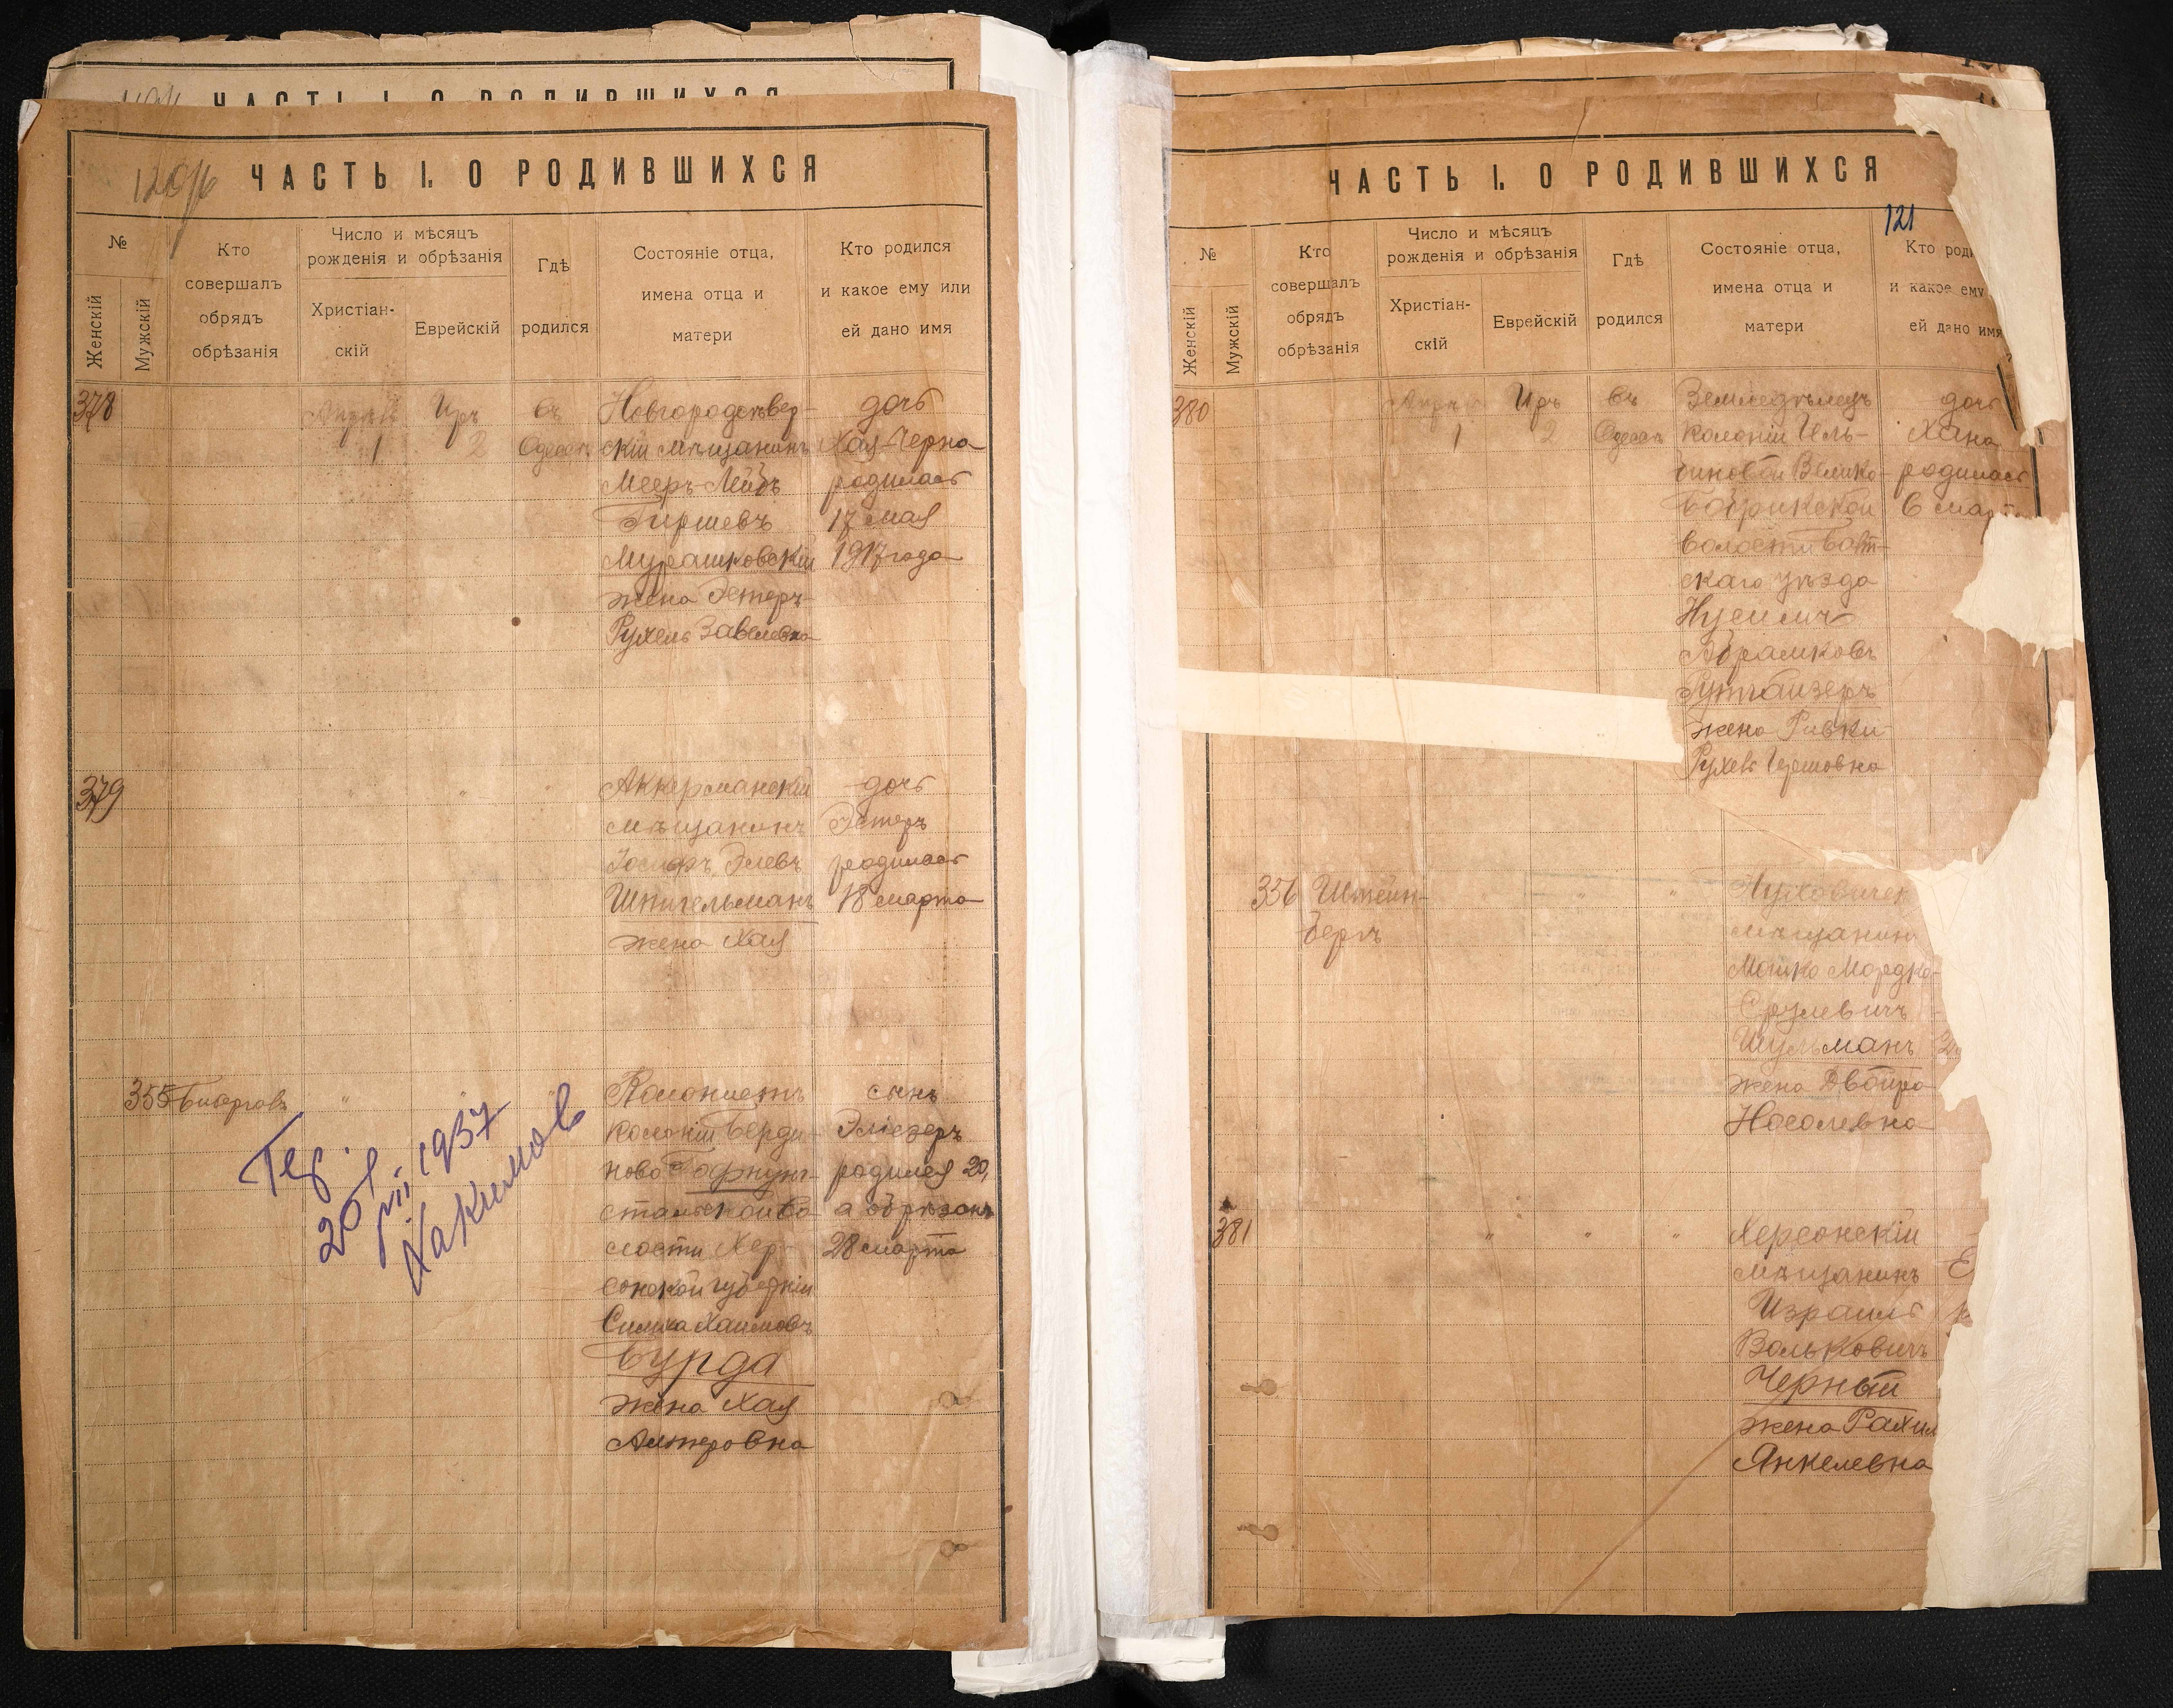 ЧАСТЬ I. О РОДИВШИХСЯ
120/6 ЧАСТЬ I. О РОДИВШИХСЯ
№
Женскій
Мужскій
Кто совершалъ обрядъ обрѣзанія
Число и мѣсяцъ рожденія и обрѣзанія
Христіан-
скій
Еврейскій
Гдѣ родился
Состояніе отца,
имена отца и
матери
Кто родился
и какое ему или
ей дано имя
378
Апрѣль
1
Иръ
2
въ
Одессѣ
Новгородсѣвер-
скій мѣщанинъ
Мееръ-Лейбъ
Гиршевъ
Мурашковскій
жена Эстеръ-
Рухель Завелевна
дочь
Хая-Черна
родилась
17 мая
1917 года
379
"
"
"
Аккерманскій
мѣщанинъ
Іосифъ Элевъ
Шпигельманъ
жена Хая
дочь
Эстеръ
родилась
18 марта
355
"
Колонистъ
колоніи Берди-
ново
волости Хер-
сонской губерніи
Симха Хаимовъ
Бурда
жена Хая
Алтеровна
сынъ
Эліезеръ
родился 20,
а обрѣзанъ
28 марта
20/VII 1937
Хакимов
ЧАСТЬ I. О РОДИВШИХСЯ
121
№
Женскій
Мужскій
Кто совершалъ обрядъ обрѣзанія
Число и мѣсяцъ рожденія и обрѣзанія
Христіан-
скій
Еврейскій
Гдѣ родился
Состояніе отца,
имена отца и
матери
Кто роди
и какое ему
ей дано имя
380
Апрѣль
1
Иръ
2
въ
Одессѣ
Земледѣлецъ
колоніи Иль-
Велико-
волости Балт-
скаго уѣзда
Нусимъ
Абрамковъ
Гутгайзеръ
жена Ривки-
Рухель Гершовна
дочь
Хана
родилась
6 март
356
Штейн-
бергъ
"
"
"
мѣщанин
Мошко Мордко-
Срулевичъ
Шульманъ
жена Двойра
Носолевна
381
"
"
"
Херсонскій
мѣщанинъ
Израиль
Вольковичъ
Черный
жена Рахил
Янкелевна